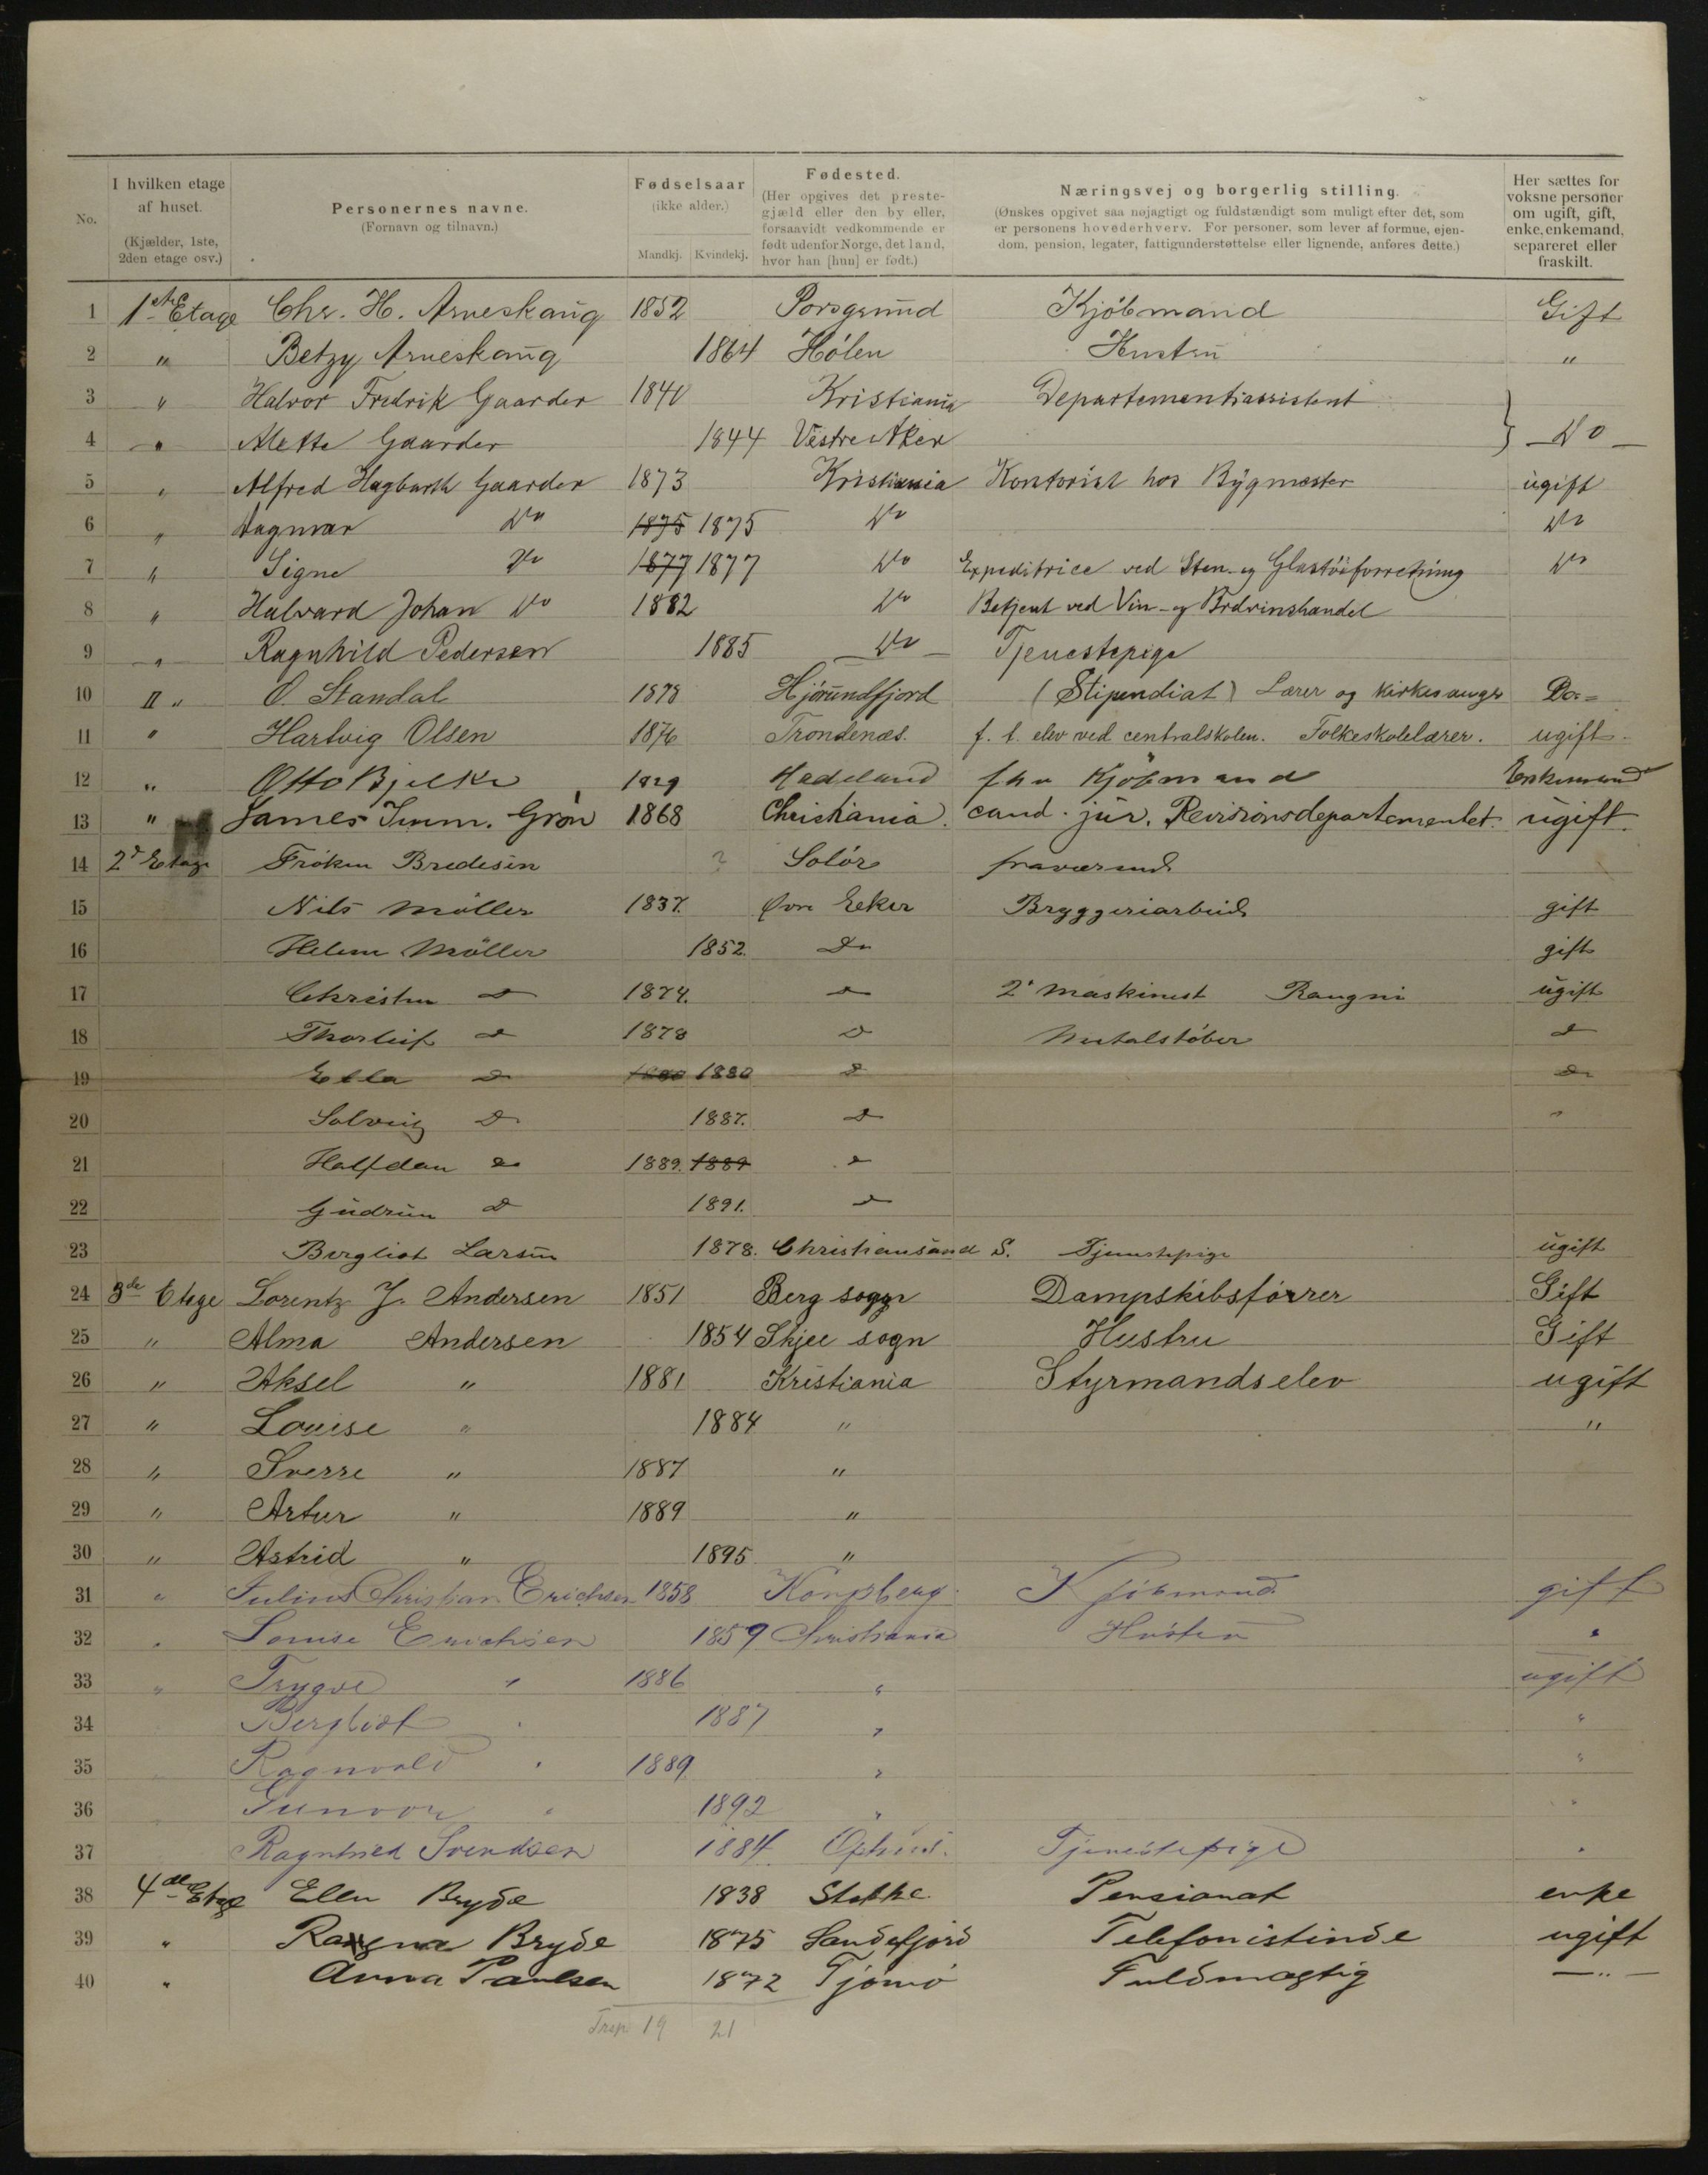 No.
I hvilken etage af huset. (Kjælder, 1ste, 2den etage osv.)
Personernes navne. (Fornavn og tilnavn.)
Fødselsaar (ikke alder.) Mandkj. Kvindekj.
Fødested. (Her opgives det prestegjæld eller den by eller, forsaavidt vedkommende er født udenfor Norge, det land, hvor han [hun] er født.)
Næringsvej og borgerlig stilling. (Ønskes opgivet saa nøjagtigt og fuldstændigt som muligt efter det, som er personens hovederhverv. For personer, som lever af formue, ejendom, pension, legater, fattigunderstøttelse eller lignende, anføres dette.)
Her sættes for voksne personer om ugift, gift, enke, enkemand, separeret eller fraskilt.
1 1ste Etage Chr. H. Arneskaug 1852 Porsgrund Kjöbmand Gift
2 " Betzy Arneskaug 1864 Hölen Hustru "
3 " Halvor Fredrik Gaarder 1840 Kristiania Departementsassistent
4 " Alette Gaarder 1844 Vestre Aker } Do
5 " Alfred Hagbarth Gaarder 1873 Kristiania Kontorist hos Bygmester ugift
6 " Dagmar Do 1875 1875 Do Do
7 " Signe Do 1877 1877 Do Expeditrice ved Sten- og Glastöiforretning Do
8 " Halvard Johan Do 1882 Do Betjent ved Vin- og Brdvinshandel
9 " Ragnhild Pedersen 1885 Do Tjenestepige
10 II " O. Standal 1878 Hjörundfjord (Stipendiat) Lærer og kirkesanger Do
11 " Hartvig Olsen 1876 Trondenæs. f. t. elev ved centralskolen. Folkeskolelærer. ugift
12 " Otto Bjelke 1829 Hadeland fhv Kjöbmand Enkemand
13 " James Imm. Grøn 1868 Christiania. cand. jur. Revisionsdepartementet. ugift.
14 2d Etage Fröken Bredesen ? Solör fraværende
15 Nils Möller 1837. Øvre Eker Bryggeriarbeid gift
16 Helene Möller 1852. Do gift
17 Christen Do 1874. Do 2. Maskinist ugift
18 Thorleif Do 1878 Do Metalstöber Do
19 Ella Do 1880 1880 Do Do
20 Solveig Do 1887. Do "
21 Halfdan Do 1889. 1889 Do
22 Gudrun Do 1891. Do
23 Bergliot Larsen 1878. Christiansand S. Tjenestepige ugift
24 3de Etage Lorentz J. Andersen 1851 Berg sogn Dampskibsförrer Gift
25 " Alma Andersen 1854 Skjee sogn Hustru Gift
26 " Aksel " 1881 Kristiania Styrmandselev ugift
27 " Louise " 1884 " "
28 " Sverre " 1887 "
29 " Artur " 1889 "
30 " Astrid " 1895 "
31 " Julius Christian Erichsen 1858 Kongsberg. Kjöbmand gift
32 " Louise Erichsen 1859 Christiania Hustru "
33 " Trygve " 1886 " ugift
34 Bergliot " 1887 " "
35 Ragnvald " 1889 " "
36 Gunvor " 1892 " "
37 Ragnhild Svendsen 1884 Tjenestepige "
38 4de Etage Ellen Bryde 1838 Stokke Pensionat enke
39 " Ragna Bryde 1875 Sandefjord Telefonistinde ugift
40 " Anna Paulsen 1872 Tjömö Fuldmægtig — " —
Trsp 19 21